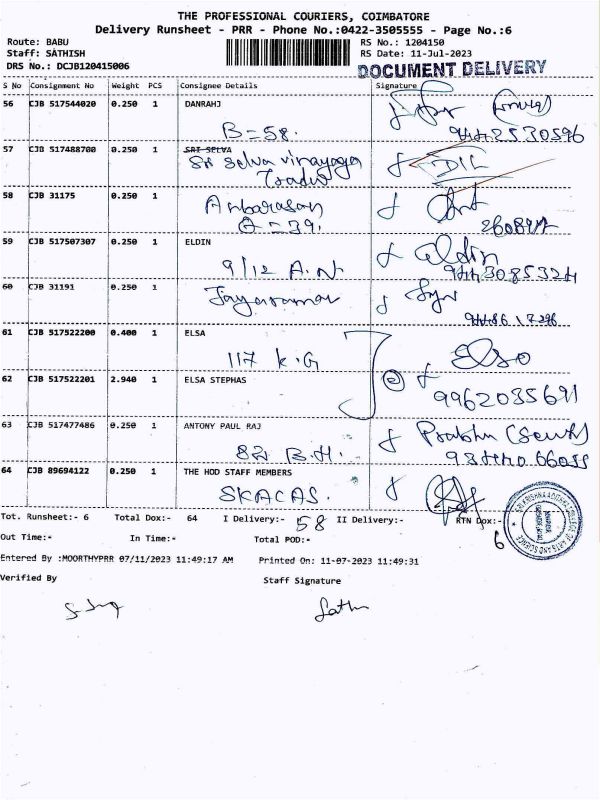 THE PROFESSIONAL COURIERS, COIMBATORE
Delivery Runsheet - PRR - Phone No.:0422-3505555 - Page No.:6
Route: BABU
RS No.: 1204150
Staff: SATHISH
RS Date: 11-Jul-2023
DRS No.: DCJB120415006
DOCUMENT DELIVERY
S No Consignment No Weight PCS Consignee Details Signature
56 CJB 517544020 0.250 1 DANRAHJ
B-58.
57 CJB 517488700 0.250 1 SRI SELVA
Sri Selva vinayaga
DIL
58 CJB 31175 0.250 1 Anbarasan
59 CJB 517507307 0.250 1 ELDIN
Eldin
9/12 A.N
60 CJB 31191 0.250 1 Jayaraman
61 CJB 517522200 0.400 1 ELSA
117 K.G
Elsa
62 CJB 517522201 2.940 1 ELSA STEPHAS
9962035691
63 CJB 517477486 0.250 1 ANTONY PAUL RAJ
82 B.H.
Prabhu
64 CJB 89694122 0.250 1 THE HOD STAFF MEMBERS
SKACAS.
Tot. Runsheet:- 6 Total Dox:- 64 I Delivery:- 58 II Delivery:- RTN Dox:- 6
Out Time:- In Time:- Total POD:-
Entered By :MOORTHYPRR 07/11/2023 11:49:17 AM Printed On: 11-07-2023 11:49:31
Verified By Staff Signature